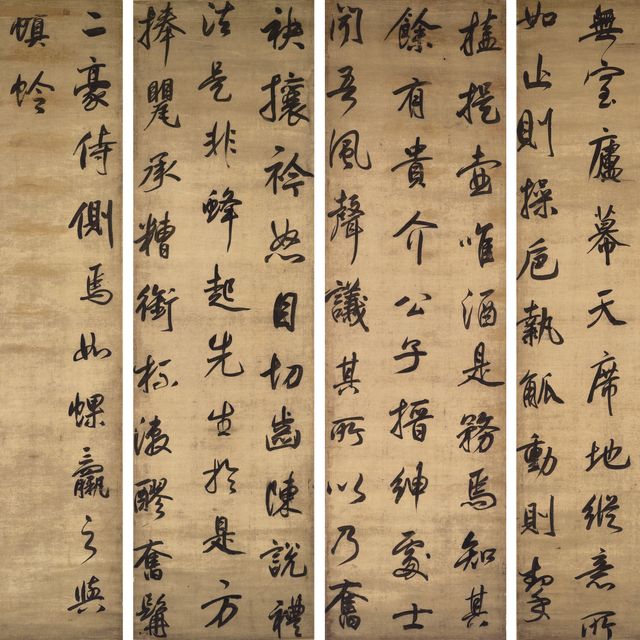 無室廬幕天席地縱意所
如止則操巵執觚動則挈
榼提壺唯酒是務焉知其
餘有貴介公子搢紳處士
聞吾風聲議其所以乃奮
袂攘衿怒目切齒陳說禮
法是非蜂起先生於是方
捧甖承糟銜杯漱醪奮髯
二豪侍側焉如蜾蠃之與
螟蛉